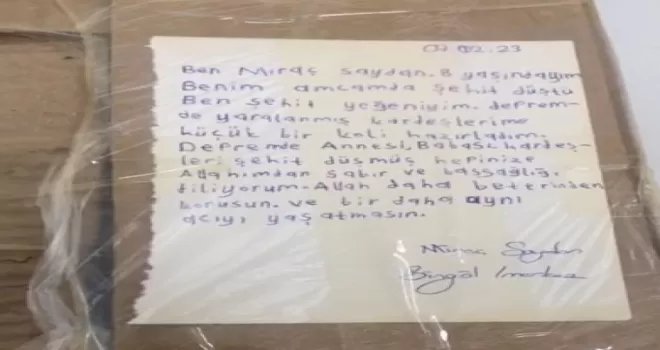 02.23
Ben Miraç Saydan. 8 yaşındayım
Benim amcamda şehit düştü
Ben şehit yeğeniyim. deprem-
de yaralanmış kardeşlerime
küçük bir koli hazırladım.
Depremde Annesi, Babası, kardeş-
leri şehit düşmüş hepinize
Allahımdan sabır ve başsağlığı
diliyorum. Allah daha beterinden
korusun. ve bir daha aynı
acıyı yaşatmasın.
Miraç Saydan
Bingöl / merkez